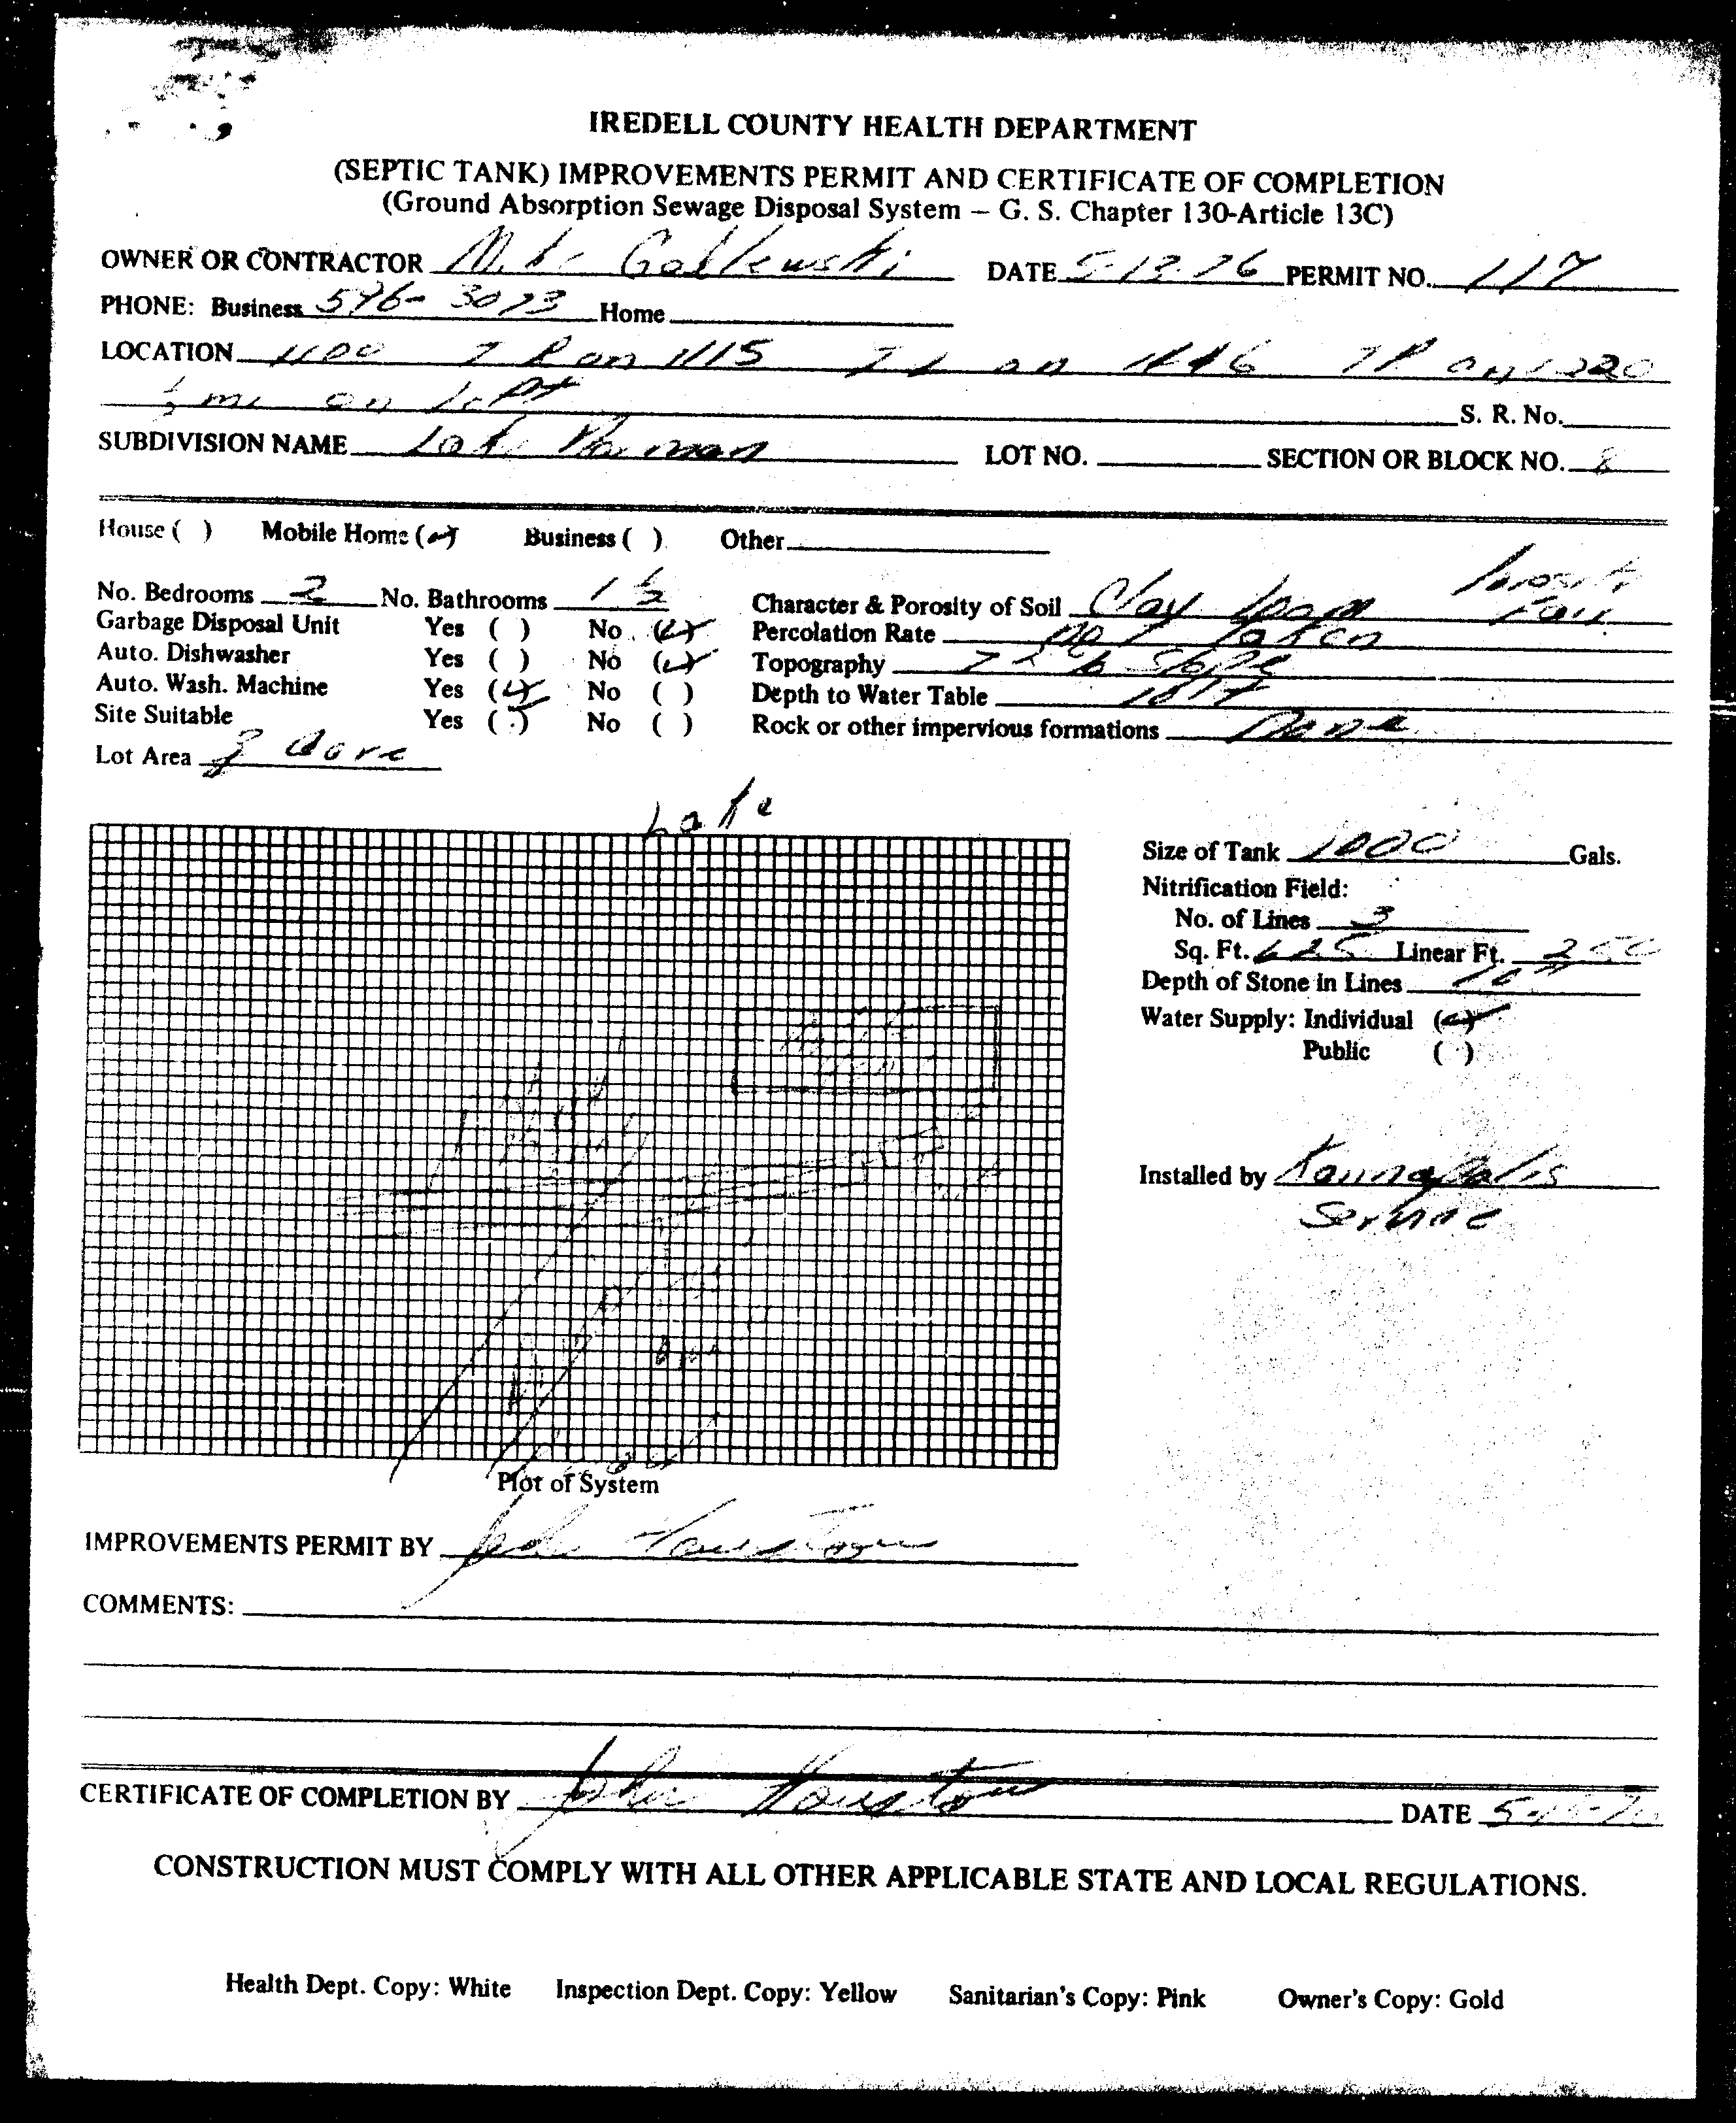 IREDELL COUNTY HEALTH DEPARTMENT
(SEPTIC TANK) IMPROVEMENTS PERMIT AND CERTIFICATE OF COMPLETION
(Ground Absorption Sewage Disposal System – G. S. Chapter 130-Article 13C)
OWNER OR CONTRACTOR Mike DATE PERMIT NO. 117
PHONE: Business Home
LOCATION 1100 T R on 1115 T L on T R on
½ mi on left S. R. No.
SUBDIVISION NAME Lake Norman LOT NO. SECTION OR BLOCK NO. 8
House ( ) Mobile Home (✓) Business ( ) Other
No. Bedrooms 2 No. Bathrooms 1 ½ Character & Porosity of Soil Clay loam porosity Fair
Garbage Disposal Unit Yes ( ) No (✓) Percolation Rate not taken
Auto. Dishwasher Yes ( ) No (✓) Topography slope
Auto. Wash. Machine Yes (✓) No ( ) Depth to Water Table
Site Suitable Yes (✓) No ( ) Rock or other impervious formations None
Lot Area acre
Lake
Size of Tank 1000 Gals.
Nitrification Field:
No. of Lines 3
Sq. Ft. 625 Linear Ft. 250
Depth of Stone in Lines 10"
Water Supply: Individual (✓)
Public ( )
Installed by Kannapolis
Service
Plot of System
IMPROVEMENTS PERMIT BY John Houston
COMMENTS:
CERTIFICATE OF COMPLETION BY John Houston DATE
CONSTRUCTION MUST COMPLY WITH ALL OTHER APPLICABLE STATE AND LOCAL REGULATIONS.
Health Dept. Copy: White Inspection Dept. Copy: Yellow Sanitarian's Copy: Pink Owner's Copy: Gold